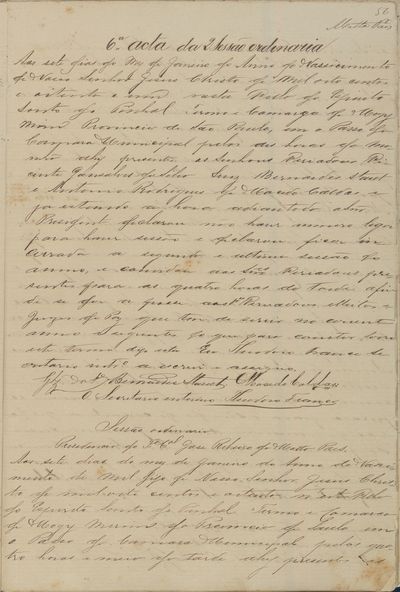 56
6.ª acta da 2 Sessão ordinaria
Aos sete dias do Mez de Janeiro do Anno do Nascimento
de Nosso Senhor Jesus Christo de Mil oito centos
e oitenta e um nesta Villa do Espirito
Santo do Pinhal Termo e Comarca de Mogy
Mirim Provincia de São Paulo, em o Paço da
Camara Municipal pelas dez horas da ma
nhã ahy presente os Senhores Vereadores
da Silva Luiz Bernardes Staut
e Antonio Rodrigues de Macedo Caldas e
ja estando a hora adiantada o
Presidente declarou não haver numero legal
para haver sessão e declarou ficar en
cerrada a segunda e ultima sessão do
anno, e convidou aos Snrs Vereadores pre
sentes para as quatro horas da tarde afim
de se dar a posse aos Vereadores eleitos
Juizes de Paz que tem de servir no corrente
anno e seguintes do que para constar lavrei
este termo Eu Theodoro Franco Se
cretario o escrevi e assigno
Bernardes Staut Macedo Caldas
O Secretario interino Theodoro Franco
Sessão ordinaria
Presidencia do José Ribeiro da Motta Paes
Aos sete dias do mez de Janeiro do Anno do Nasci
mento de Mil digo de Nosso Senhor Jesus Chris
to de mil oito centos e oitenta nesta Villa
do Espirito Santo do Pinhal Termo e Comarca
de Mogy Mirim da Provincia de S. Paulo em
o Paço da Camara Municipal pelas qua
tro horas e meia da tarde ahy presentes os